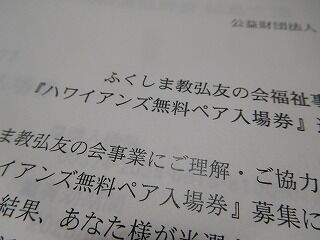 公益財団法人
ふくしま教弘友の会福祉事
『ハワイアンズ無料ペア入場券』
ま教弘友の会事業にご理解・ご協力
イアンズ無料ペア入場券』募集に
結果、あなた様が当選